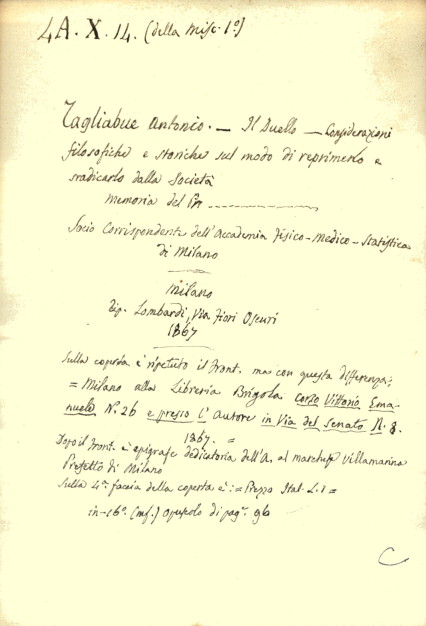 4A. X. 14. (della Misc. 1ª)
Tagliabue Antonio. — Il Duello — Considerazioni
filosofiche e storiche sul modo di reprimerlo e
sradicarlo dalla Società
Memoria del
Socio Corrispondente dell'Accademia Fisico-Medico-Statistica
di Milano
Milano
tip. Lombardi, Via Fiori Oscuri
1867
Sulla coperta è ripetuto il front. ma con questa differenza:
= Milano alla Libreria Brigola corso Vittorio Ema-
nuele N. 26 e presso l'Autore in Via del Senato N. 8.
1867. =
Dopo il front. è epigrafe dedicatoria dell'A. al march. Villamarina
Prefetto di Milano
Sulla 4ª faccia della coperta è: = Prezzo Ital. L. 1 =
in-16º. (mf.) Opuscolo di pag. 96
C